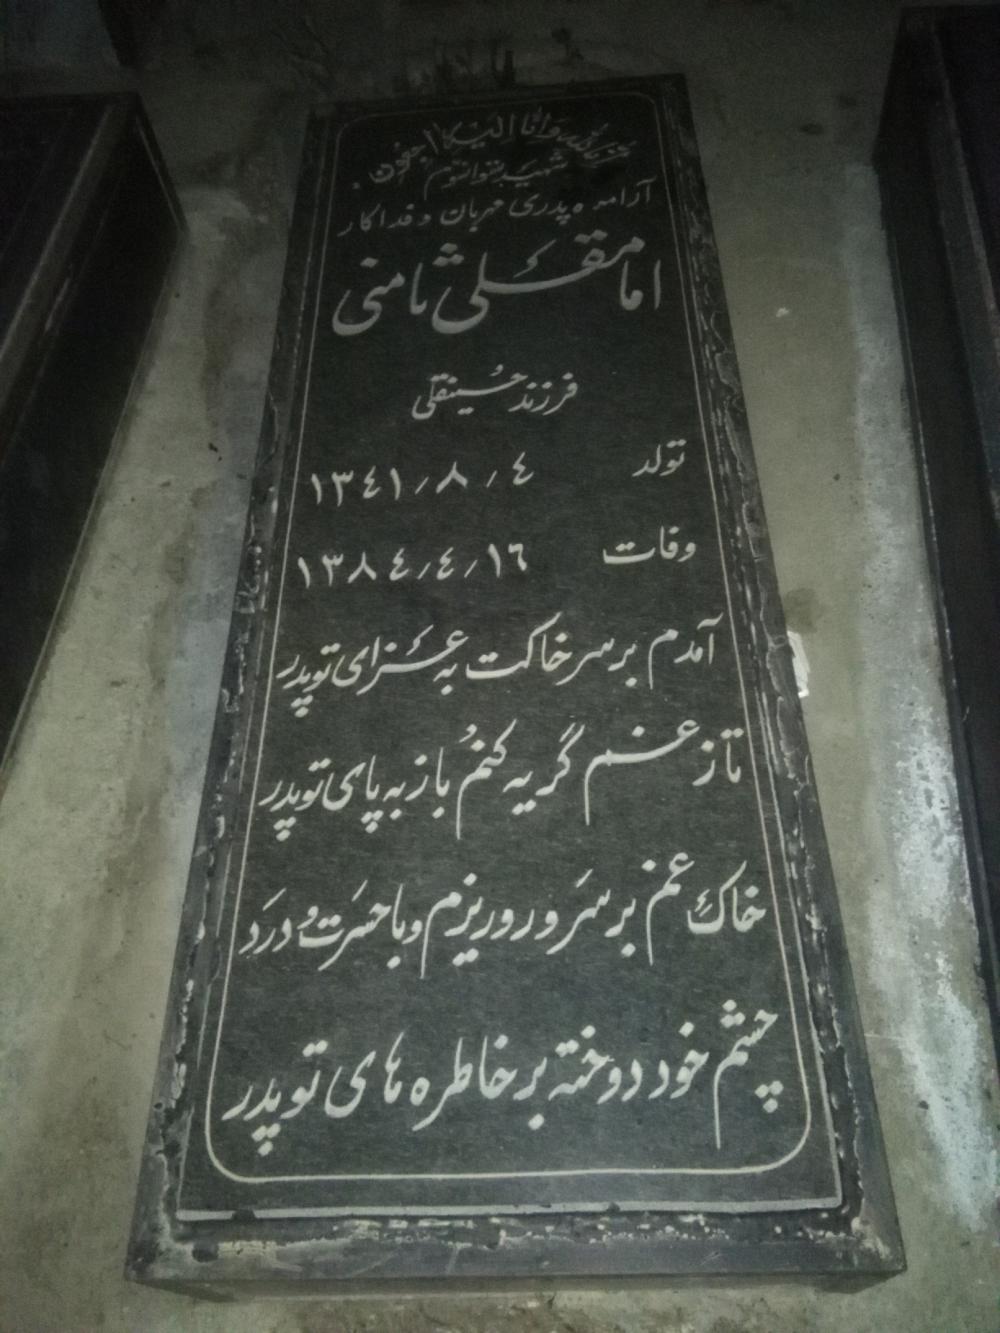 وانا الیه راجعون
شهید
آرامگاه پدری مهربان و فداکار
امامقلی ثامنی
فرزند حسینقلی
تولد ۱۳٤۱/۸/٤
وفات ۱۳۸٤/٤/۱٦
آمدم بر سر خاکت به عزای تو پدر
تا ز غم گریه کنم باز به پای تو پدر
خاک غم بر سر و رو ریزم و با حسرت و درد
چشم خود دوخته بر خاطره های تو پدر